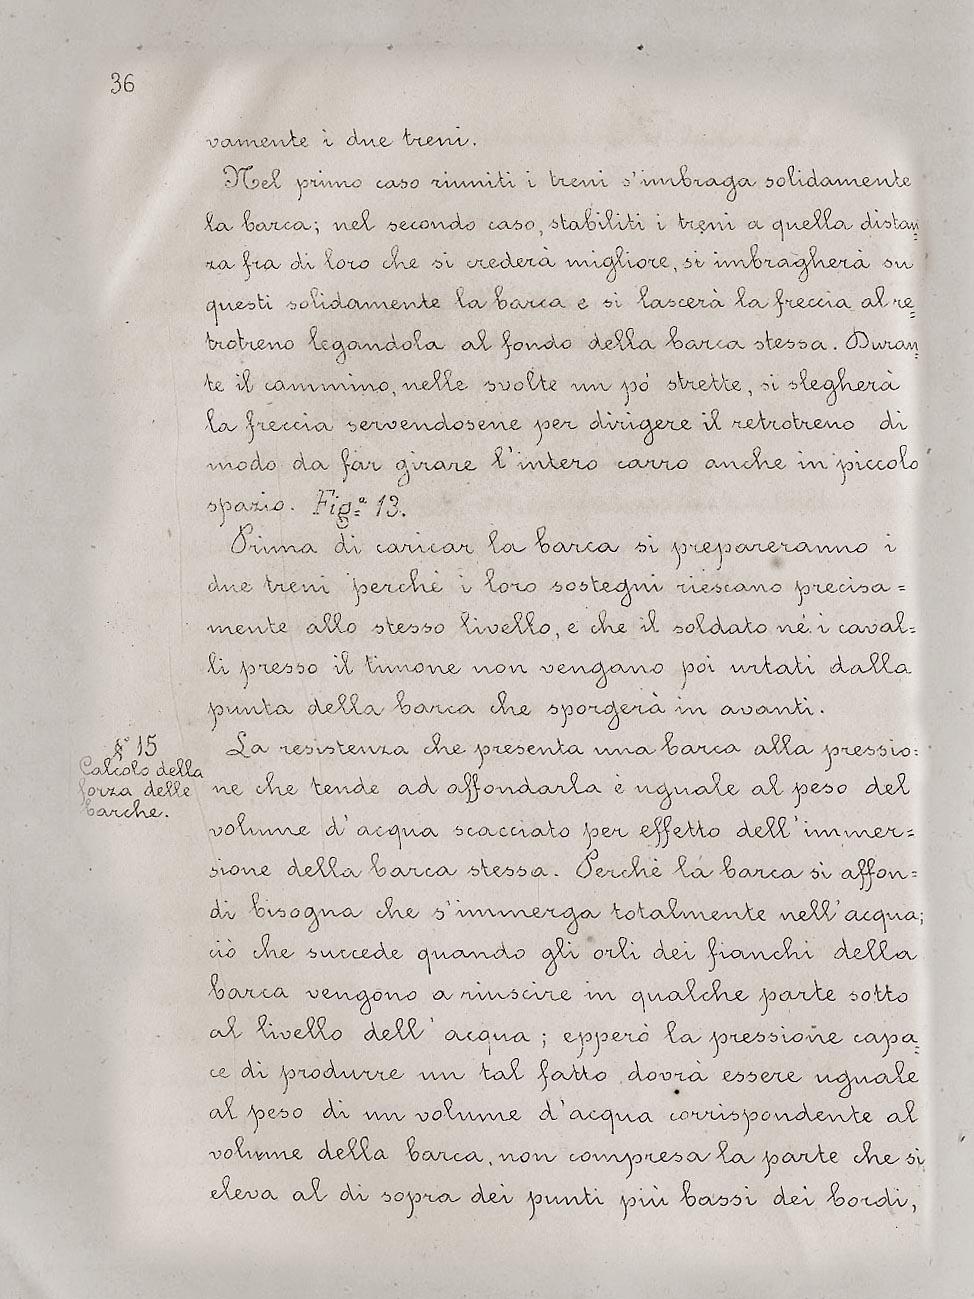 36
vamente i due treni.
Nel primo caso riuniti i treni s'imbraga solidamente
la barca; nel secondo caso, stabiliti i treni a quella distan=
za fra di loro che si crederà migliore, si imbragherà su
questi solidamente la barca e si lascerà la freccia al re=
trotreno legandola al fondo della barca stessa. Duran=
te il cammino, nelle svolte un pó strette, si slegherà
la freccia servendosene per dirigere il retrotreno di
modo da far girare l'intero carro anche in piccolo
spazio. Fig.ª 13.
Prima di caricar la barca si prepareranno i
due treni perchè i loro sostegni riescano precisa=
mente allo stesso livello, e che il soldato nè i caval=
li presso il timone non vengano poi urtati dalla
punta della barca che sporgerà in avanti.
§° 15
Calcolo della
forza delle
barche.
La resistenza che presenta una barca alla pressio=
ne che tende ad affondarla è uguale al peso del
volume d'acqua scacciato per effetto dell'immer=
sione della barca stessa. Perchè la barca si affon=
di bisogna che s'immerga totalmente nell'acqua;
ciò che succede quando gli orli dei fianchi della
barca vengono a riuscire in qualche parte sotto
al livello dell'acqua; epperò la pressione capa=
ce di produrre un tal fatto dovrà essere uguale
al peso di un volume d'acqua corrispondente al
volume della barca, non compresa la parte che si
eleva al di sopra dei punti più bassi dei bordi,